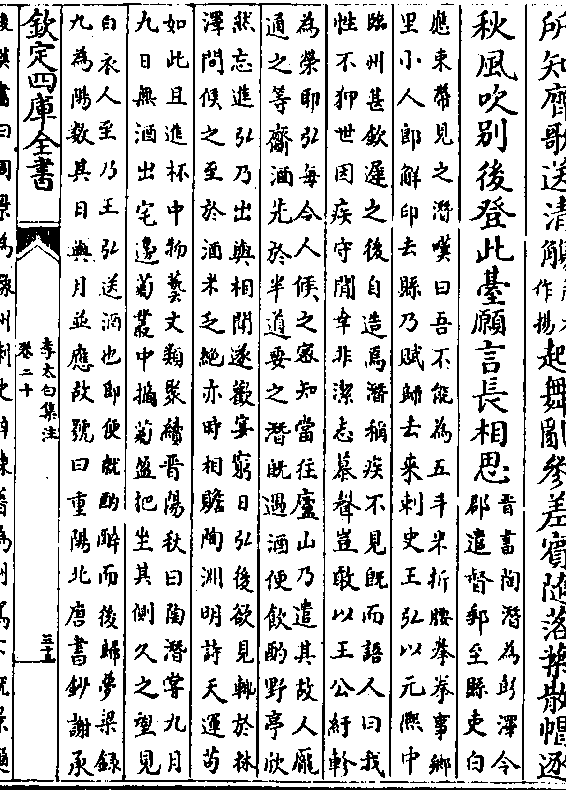 所知齊歌送清觴作揚起舞亂參差賓隨落葉散帽逐
秋風吹別後登此臺願言長相思
晉書陶潛為彭澤令
郡遣督郵至縣吏白
應束帶見之潛嘆曰吾不能為五斗米折腰拳拳事鄉
里小人郎解印去縣乃賦歸去來刺史王弘以元熙中
臨州甚欽遲之後自造焉潛稱疾不見既而語人曰我
性不狎世因疾守閒幸非潔志慕聲豈敢以王公紆軫
為榮耶弘每令人候之密知當往廬山乃遣其故人龐
通之等齎酒先於半道要之潛既遇酒便飲酌野亭欣
然忘進弘乃出與相聞遂歡宴窮日弘後欲見輒於林
澤間候之至於酒米乏絶亦時相贍陶淵明詩天運苟
如此且進杯中物藝文類聚續晉陽秋曰陶潛嘗九月
九日無酒出宅邊菊叢中摘菊盈把坐其側久之望見
白衣人至乃王弘送酒也即便就酌醉而後歸夢梁錄
九為陽數其日與月並應故號曰重陽北唐書鈔謝承
欽定四庫全書
李太白集注
卷二十
三十五